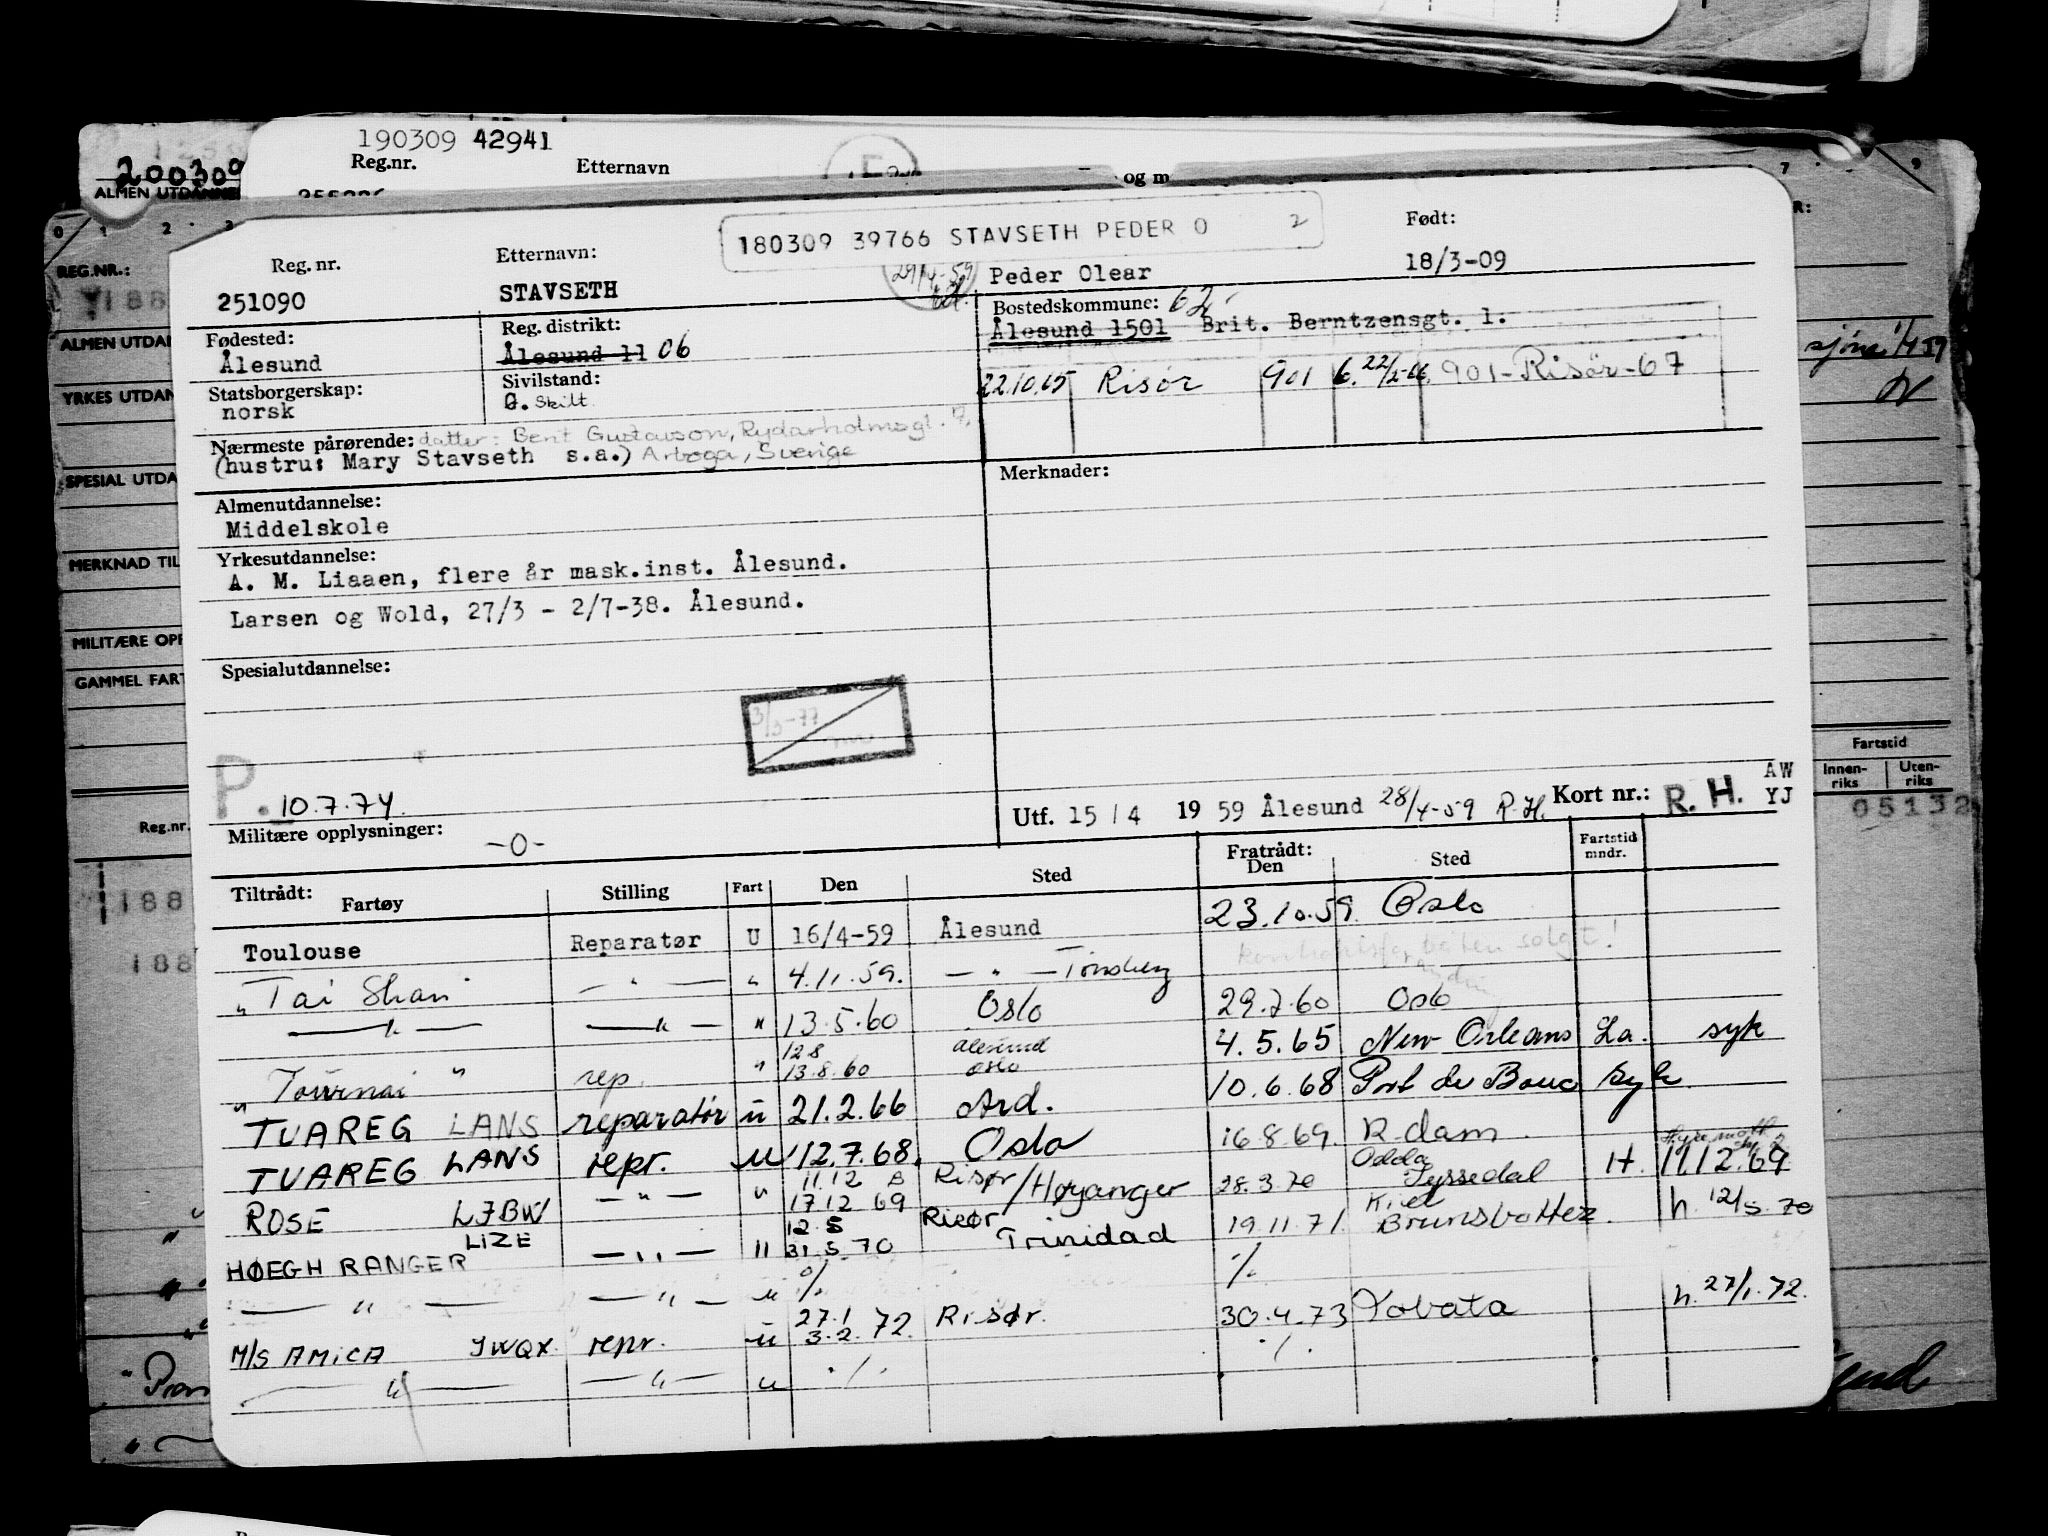 190309 42941
Reg.nr. Etternavn og m
200309
ALMEN UTDANNE
0 1 2 3 7 9
180309 39766 STAVSETH PEDER O 2
Reg. nr. Etternavn: Født:
251090 STAVSETH 29/4-59 Peder Olear 18/3-09
Fødested: Reg. distrikt: Bostedskommune: 62
Ålesund Ålesund 11 06 Ålesund 1501 Brit. Berntzensgt. 1.
Statsborgerskap: Sivilstand:
norsk G. Skilt 22.10.65 Risør 901 6. 22/2-66. 901-Risør-67
Nærmeste pårørende: datter: Berit Gustavson, Rydarholmsgt. 7,
(hustru: Mary Stavseth s.a.) Arboga, Sverige
Merknader:
Almenutdannelse:
Middelskole
Yrkesutdannelse:
A. M. Liaaen, flere år mask.inst. Ålesund.
Larsen og Wold, 27/3 - 2/7-38. Ålesund.
Spesialutdannelse:
3/3-77
P. 10.7.74.
Utf. 15/4 1959 Ålesund 28/4-59 R.H. Kort nr.: R. H. AW
YJ
Militære opplysninger: -0-
Tiltrådt: Fratrådt: Fartstid
Fartøy Stilling Fart Den Sted Den Sted mndr.
Toulouse Reparatør U 16/4-59 Ålesund 23.10.59. Oslo
" Tai Shan " — " — " 4.11.59. — " — Tønsberg båten solgt!
— " — — " — " 13.5.60 Oslo 29.7.60 Oslo
" Tournai " rep. " 12.8 13.8.60 Ålesund Oslo 4.5.65 New Orleans La. syk
TUAREG LANS reparatør u 21.2.66 Ard. 10.6.68 Port de Bouc syk
TUAREG LANS repr. u 12.7.68. Oslo 16.8.69. R.dam
ROSE LJBW — " — " 11.12 17.12 69 Risør/Høyanger 28.3.70 Odda Tyssedal H. 11.12.69
HØEGH RANGER LIZE — " — " 12.5 31.5.70 Risør Trinidad 19.11.71. Kiel Brunsbottez. h. 12/5.70
— " — — " — u % %
M/S AMICA JWQX repr. u 27.1 3.2.72. Risør. 30.4.73 Tobata h. 27/1.72.
— " — — " — u ./. ./.
REG.NR.:
188
ALMEN UTDAN
YRKES UTDAN
SPESIAL UTDA
MERKNAD TIL
MILITÆRE OPP
GAMMEL FART
Reg.nr.
188
188
R:
Fartstid
Innen-riks Uten-riks
05132